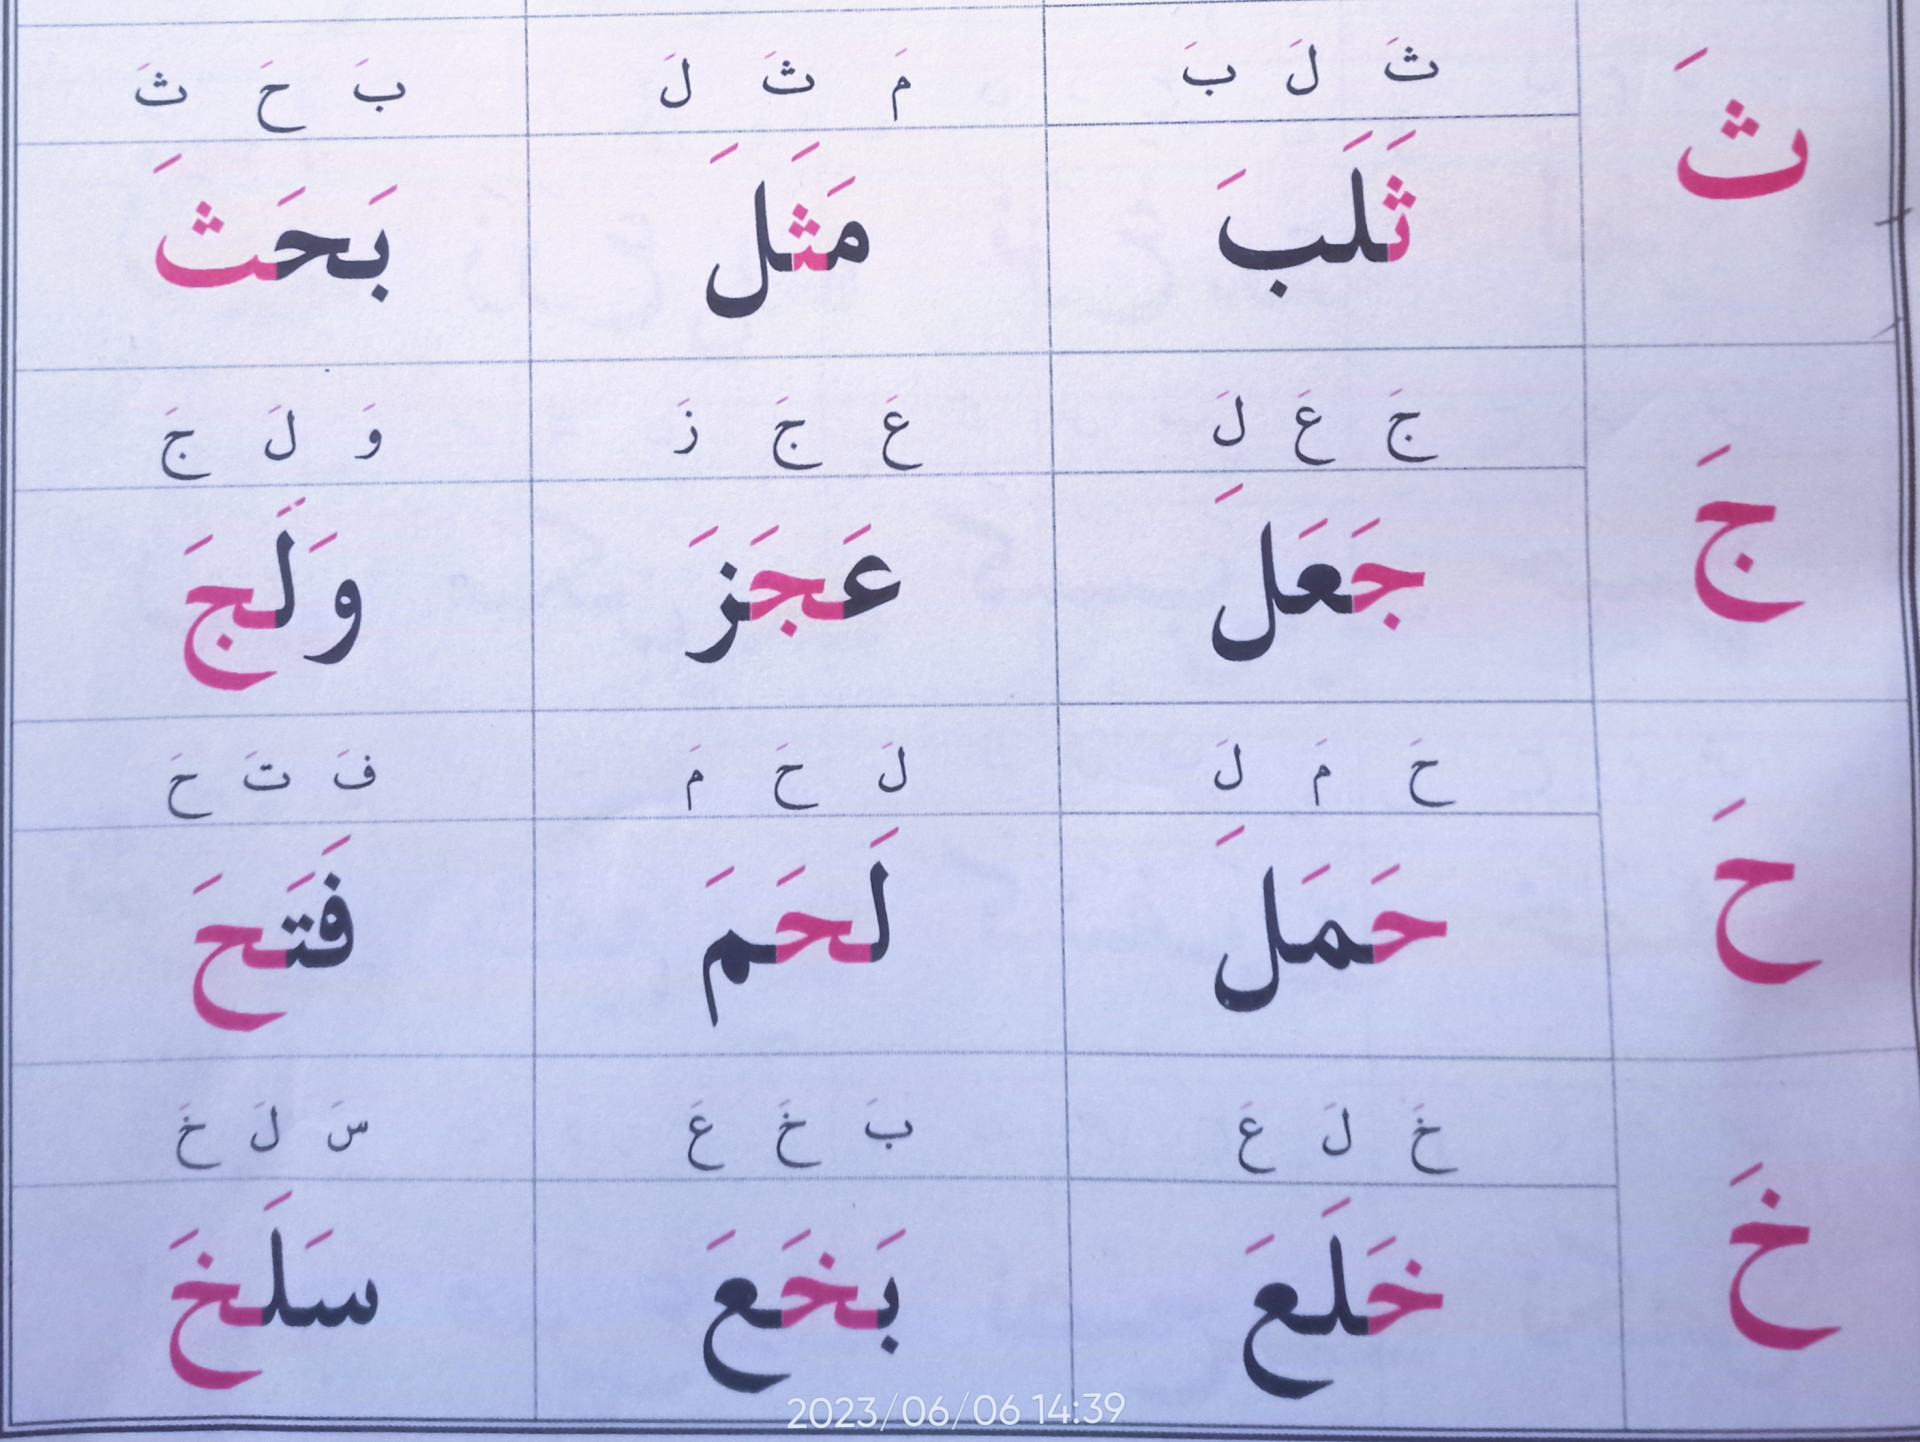 ثَ
ثَ لَ بَ مَ ثَ لَ بَ حَ ثَ
ثَلَبَ مَثَلَ بَحَثَ
جَ
جَ عَ لَ عَ جَ زَ وَ لَ جَ
جَعَلَ عَجَزَ وَلَجَ
حَ
حَ مَ لَ لَ حَ مَ فَ تَ حَ
حَمَلَ لَحَمَ فَتَحَ
خَ
خَ لَ عَ بَ خَ عَ سَ لَ خَ
خَلَعَ بَخَعَ سَلَخَ
2023/06/06 14:39